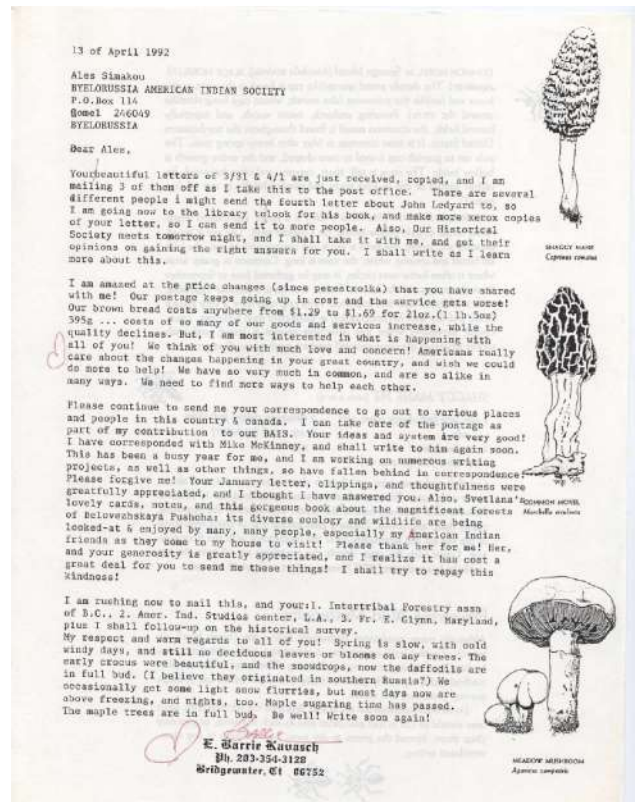 13 of April 1992
Ales Simakou
BYELORUSSIA AMERICAN INDIAN SOCIETY
P.O.Box 114
Gomel 246049
BYELORUSSIA
Dear Ales,
Yourbeautiful letters of 3/31 & 4/1 are just received, copied, and I am
mailing 3 of them off as I take this to the post office. There are several
different people i might send the fourth letter about John Ledyard to, so
I am going now to the library tolook for his book, and make more xerox copies
of your letter, so I can send it to more people. Also, Our Historical
Society meets tomorrow night, and I shall take it with me, and get their
opinions on gaining the right answers for you. I shall write as I learn
more about this.
I am amazed at the price changes (since perestroika) that you have shared
with me! Our postage keeps going up in cost and the service gets worse!
Our brown bread costs anywhere from $1.29 to $1.69 for 21oz.(1 lb.5oz)
395g ... costs of so many of our goods and services increase, while the
quality declines. But, I am most interested in what is happening with
all of you! We think of you with much love and concern! Americans really
care about the changes happening in your great country, and wish we could
do more to help! We have so very much in common, and are so alike in
many ways. We need to find more ways to help each other.
Please continue to send me your correspondence to go out to various places
and people in this country & canada. I can take care of the postage as
part of my contribution to our BAIS. Your ideas and system are very good!
I have corresponded with Mike McKinney, and shall write to him again soon.
This has been a busy year for me, and I am working on numerous writing
projects, as well as other things, so have fallen behind in correspondence.
Please forgive me! Your January letter, clippings, and thoughtfulness were
greatfully appreciated, and I thought I have answered you. Also, Svetlana's
lovely cards, notes, and this gorgeous book about the magnificent forests
of Belovezhskaya Pushcha: its diverse ecology and wildlife are being
looked-at & enjoyed by many, many people, especially my American Indian
friends as they come to my house to visit! Please thank her for me! Her,
and your generosity is greatly appreciated, and I realize it has cost a
great deal for you to send me these things! I shall try to repay this
kindness!
I am rushing now to mail this, and your:1. Intertribal Forestry assn
of B.C., 2. Amer. Ind. Studies center, L.A., 3. Fr. E. Glynn, Maryland,
plus I shall follow-up on the historical survey.
My respect and warm regards to all of you! Spring is slow, with cold
windy days, and still no deciduous leaves or blooms on any trees. The
early crocus were beautiful, and the snowdrops, now the daffodils are
in full bud. (I believe they originated in southern Russia?) We
occasionally get some light snow flurries, but most days now are
above freezing, and nights, too. Maple sugaring time has passed.
The maple trees are in full bud. Be well! Write soon again!
Barrie
E. Barrie Kavasch
Ph. 203-354-3128
Bridgewater, Ct 06752
SHAGGY MANE
Coprinus comatus
COMMON MOREL
Morchella esculenta
MEADOW MUSHROOM
Agaricus campestris